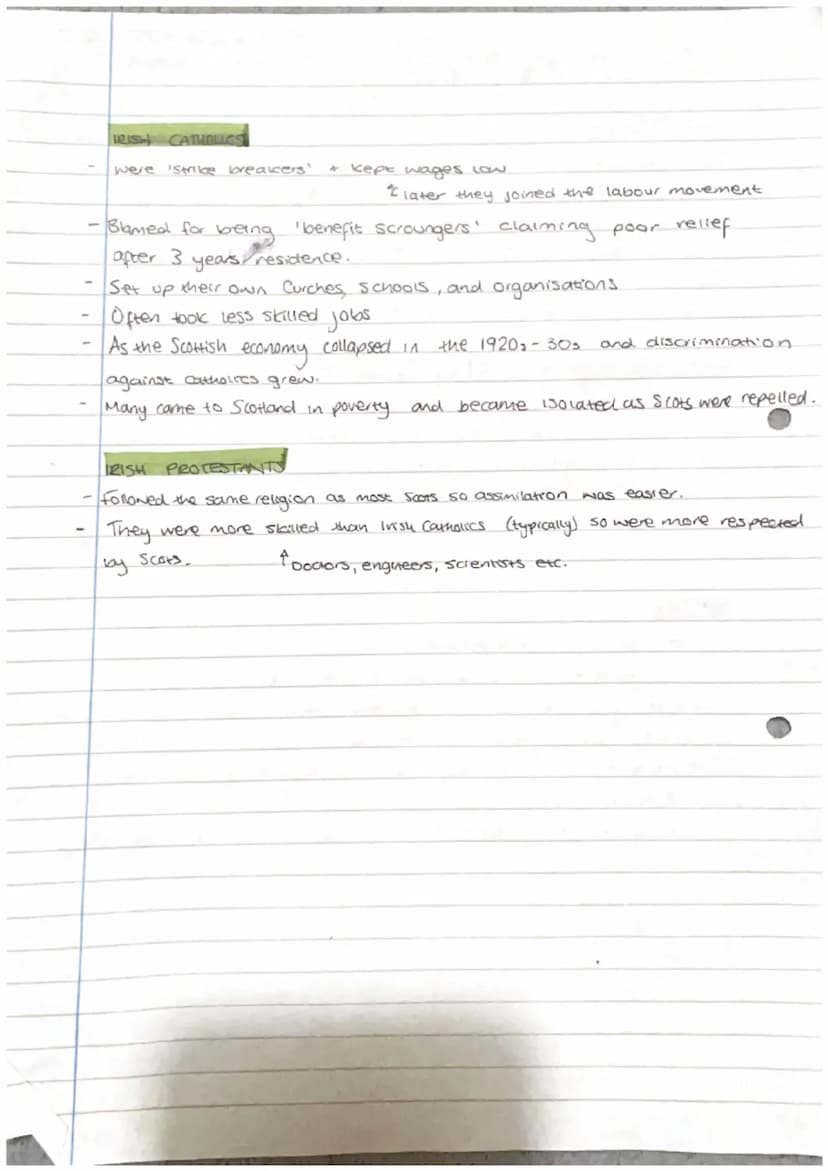 IRISH CATHOLICS
- were 'strike breakers' + kept wages low
↑ later they joined the labour movement
- Blamed for being 'benefit scroungers' claiming poor relief
after 3 years residence.
- Set up their own Curches, schools, and organisations
- Often took less skilled jobs
- As the Scottish economy collapsed in the 1920s-30s and discrimination
against catholics grew.
- Many came to Scotland in poverty and became isolated as Scots were repelled.
IRISH PROTESTANTS
- Followed the same religion as most Scots so assimilation was easier.
- They were more skilled than Irish Catholics (typically) so were more respected
by Scots. ↑ Doctors, engineers, scientists etc.